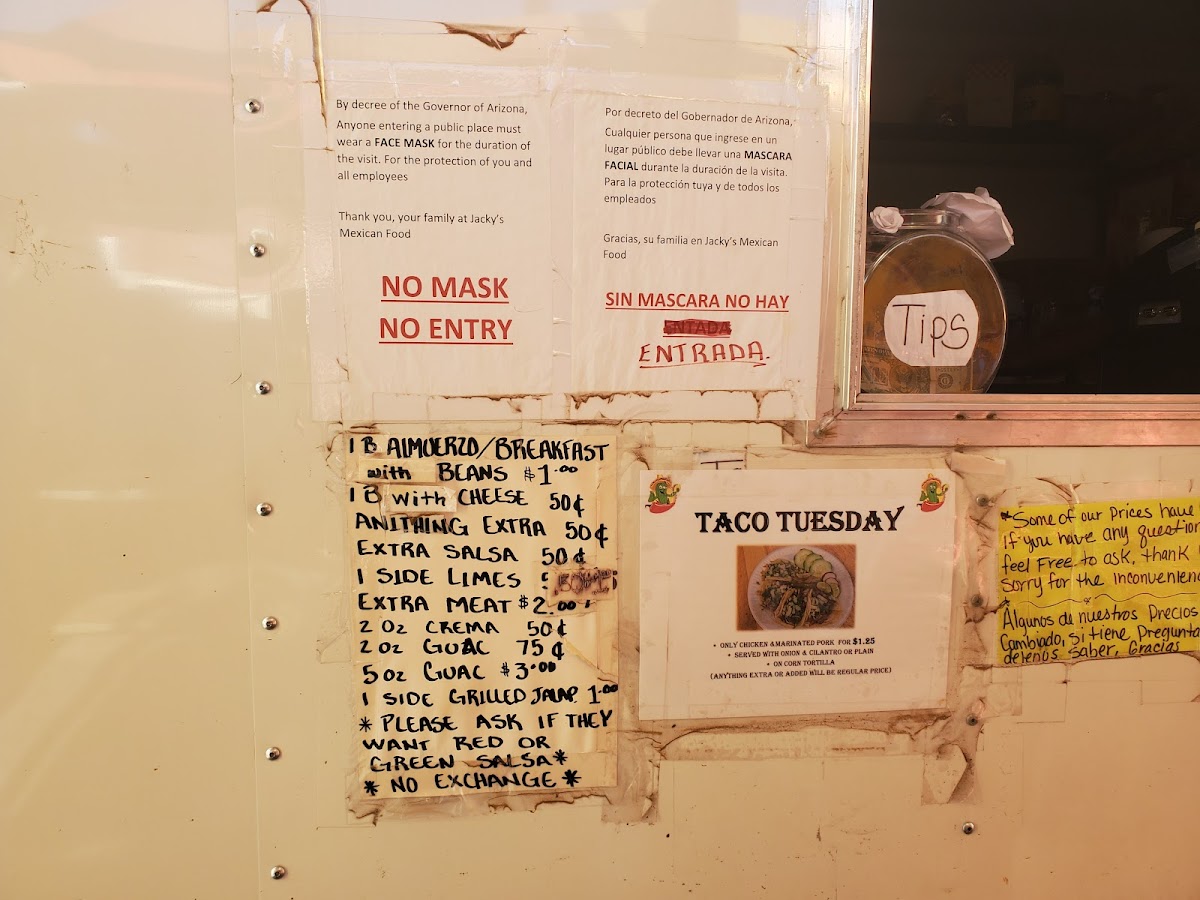 By decree of the Governor of Arizona,
Anyone entering a public place must
wear a FACE MASK for the duration of
the visit. For the protection of you and
all employees
Thank you, your family at Jacky's
Mexican Food
NO MASK
NO ENTRY
Por decreto del Gobernador de Arizona,
Cualquier persona que ingrese en un
lugar público debe llevar una MASCARA
FACIAL durante la duración de la visita.
Para la protección tuya y de todos los
empleados
Gracias, su familia en Jacky's Mexican
Food
SIN MASCARA NO HAY
ENTADA
ENTRADA.
Tips
1 B AlMUERZO/BREAKFAST
with BEANS $1.00
1 B with CHEESE 50¢
ANITHING EXTRA 50¢
EXTRA SALSA 50¢
1 SIDE LIMES
EXTRA MEAT $2.00
2 Oz CREMA 50¢
2 oz GUAC 75¢
5 oz GUAC $3.00
1 SIDE GRILLED JALAP. 1.00
* PLEASE ASK IF THEY
WANT RED OR
GREEN SALSA*
* NO EXCHANGE *
TACO TUESDAY
• ONLY CHICKEN &MARINATED PORK FOR $1.25
• SERVED WITH ONION & CILANTRO OR PLAIN
• ON CORN TORTILLA
(ANYTHING EXTRA OR ADDED WILL BE REGULAR PRICE)
*Some of our Prices have
If you have any question
feel Free to ask, thank
Sorry for the inconvenienc
* Algunos de nuestros Precios
Cambiado, si tiene Pregunta
dejenos saber, Gracias